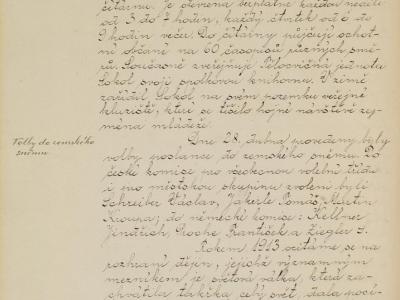 čítárnu. Je otevřena bezplatně každou neděli
od 3 do 7 hodin, každý čtvrtek od 6 do
9 hodin večer. Do čítárny půjčují ochot-
ní občané na 60 časopisů různých smě-
rů. Současně zveřejňuje Tělocvičná jednota
Sokol svoji spolkovou knihovnu. V zimě
zařídil Sokol na svém pozemku veřejné
kluziště, které se těšilo hojné návštěvě zej-
ména mládeže.
Volby do zemského
sněmu
Dne 28. dubna provedeny byly
volby poslance do zemského sněmu. Do
české komise pro všeobecnou volební třídu
i pro městskou skupinu zvoleni byli
Schreiber Václav, Jakerle Tomáš, Martin
Kroupa; do německé komise: Kellner
Jindřich, Roche František a Ziegler J.
Rokem 1913 ocitáme se na
rozhraní dějin, jejichž významným
mezníkem je světová válka, která za-
chvátila takřka celý svět, stala